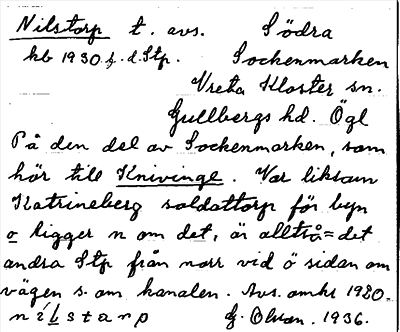 Nilstorp t. avs. Södra
kb 1930 f. d. Stp. Sockenmarken
Vreta Kloster sn.
Gullbergs hd. Ögl
På den del av Sockenmarken, som
hör till Knivinge. Var liksom
Katrineberg soldattorp för byn
o ligger n om det, är alltså = det
andra Stp från norr vid ö sidan om
vägen s. om kanalen. Avs. omkr 1920.
n i l s t a r p G. Olson. 1936.